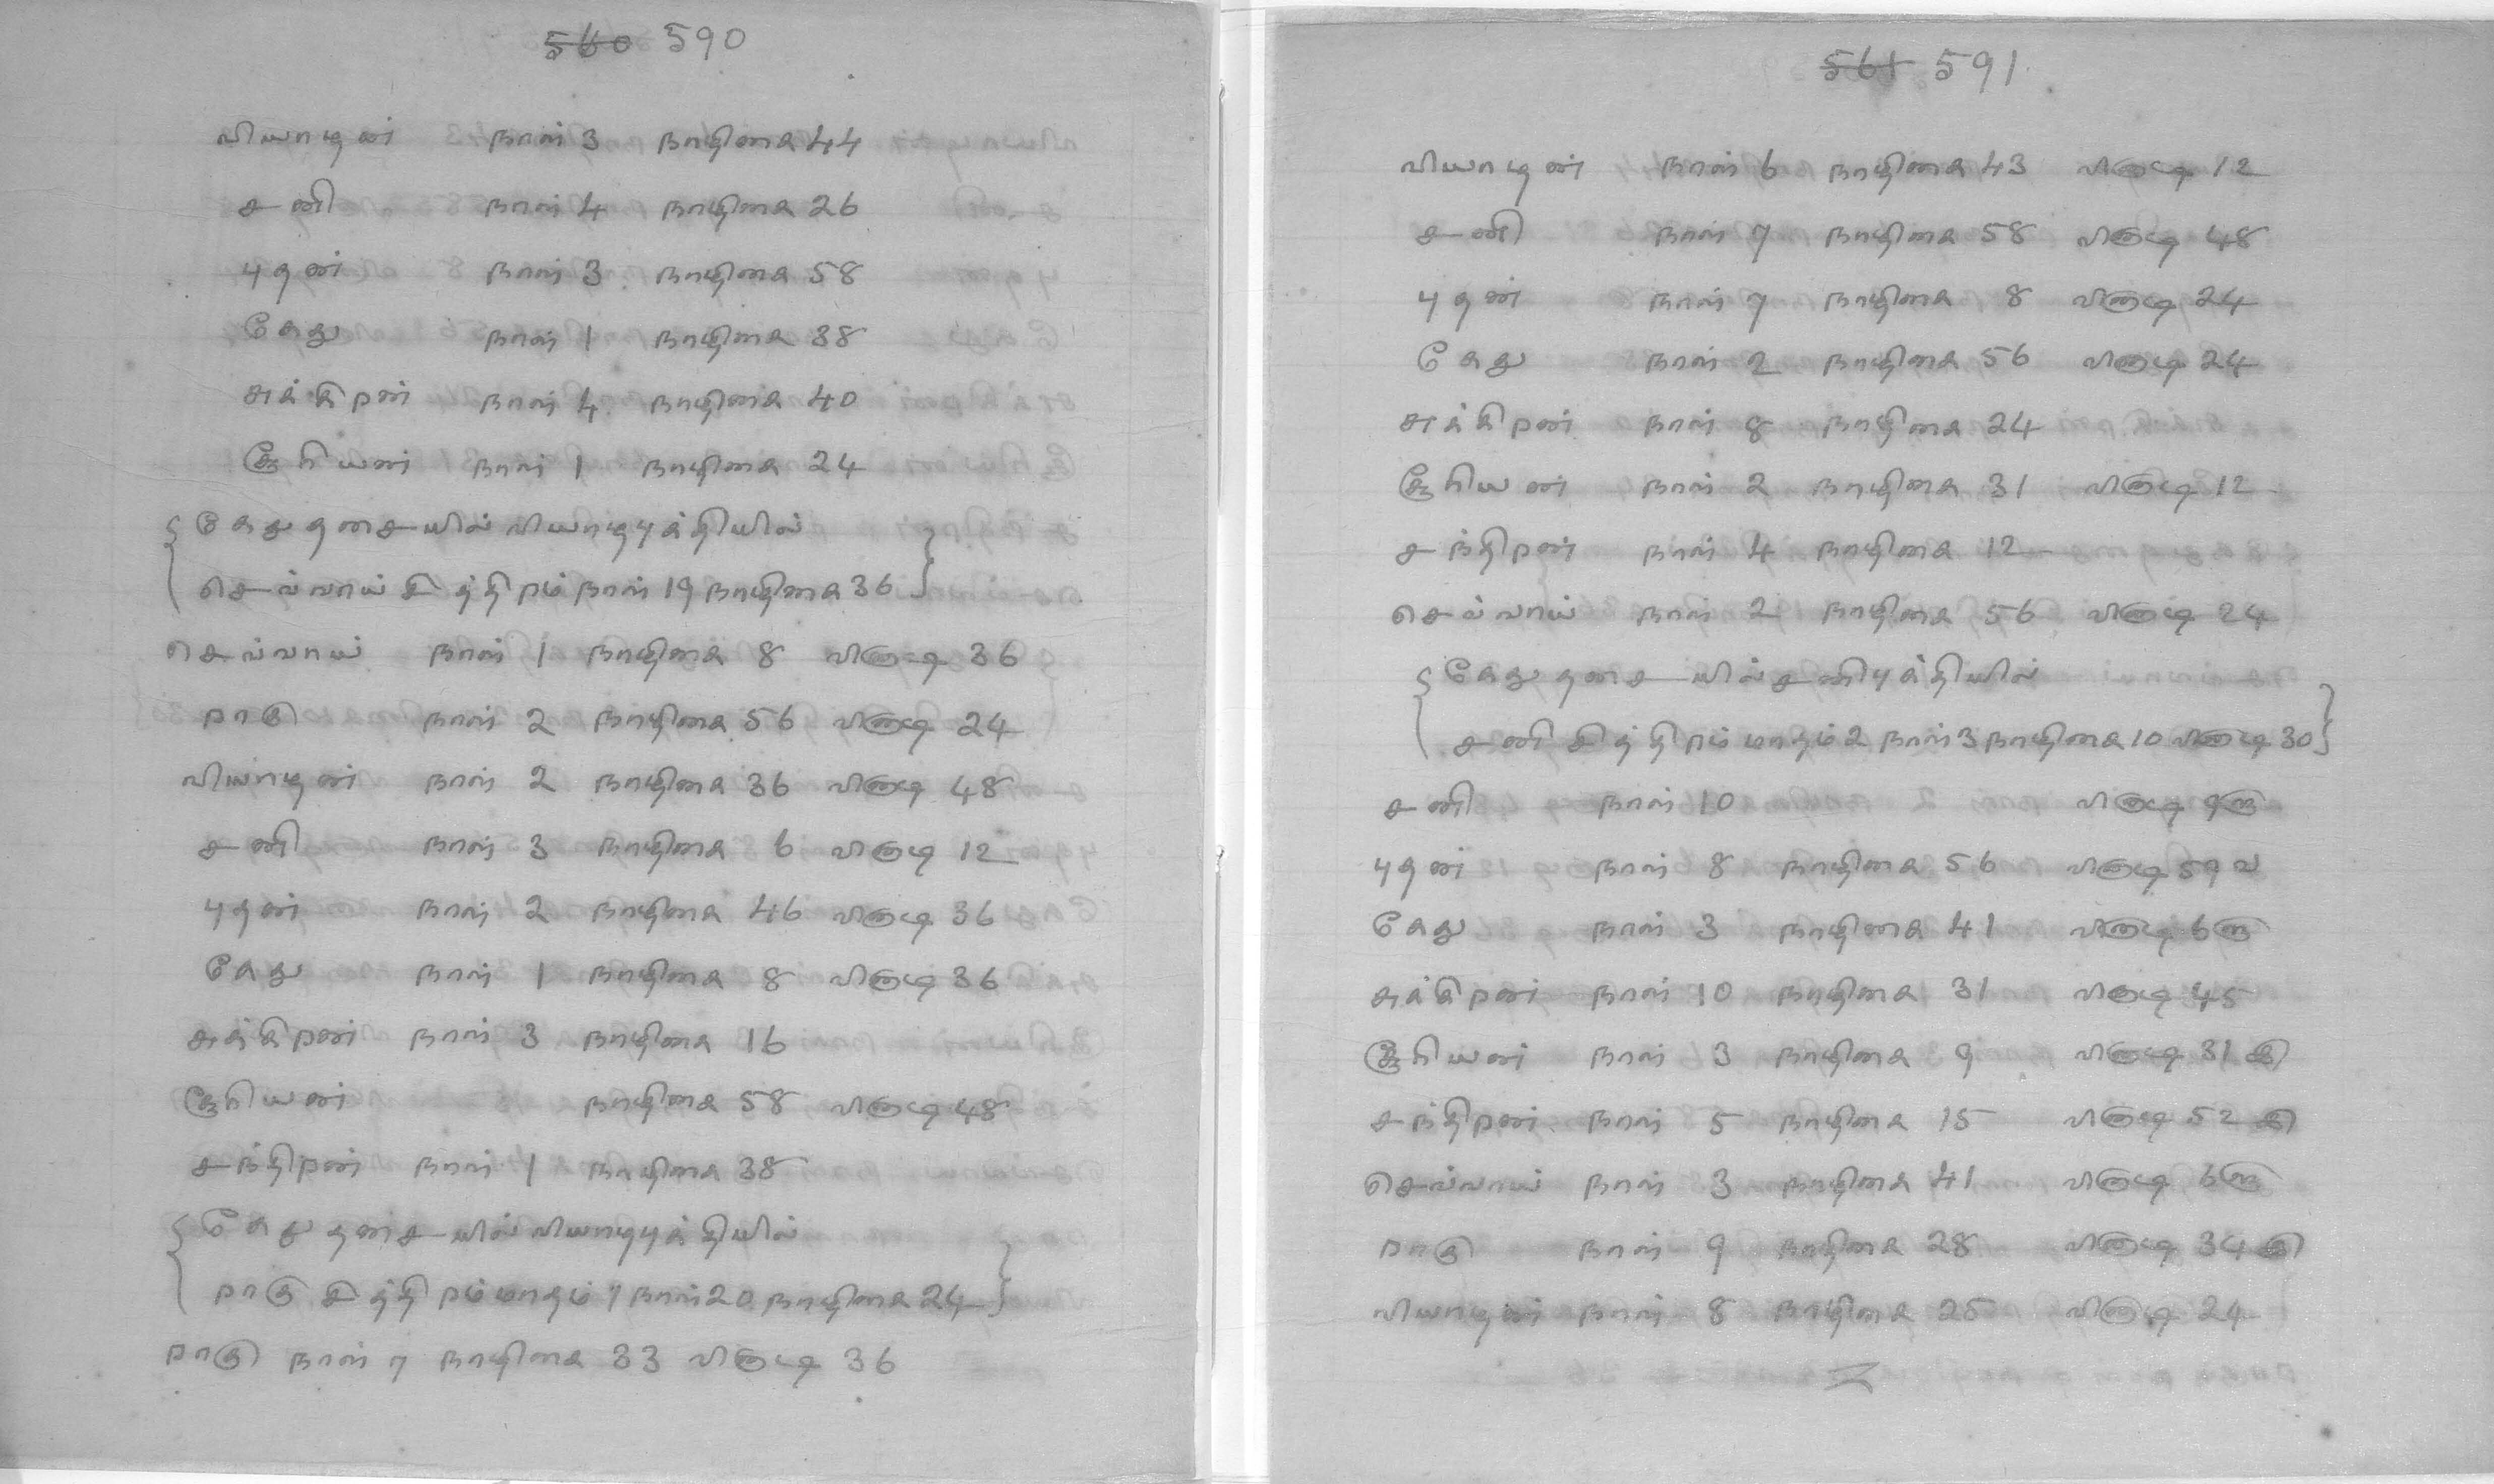 560 590
வியாழன் நாள் 3 நாழிகை 44
சனி நாள் 4 நாழிகை 26
புதன் நாள் 3 நாழிகை 58
கேது நாள் 1 நாழிகை 38
சுக்கிரன் நாள் 4 நாழிகை 40
சூரியன் நாள் 1 நாழிகை 24
{கேது தசையில் வியாழபுக்தியில்
செவ்வாய் சித்திரம் நாள் 19 நாழிகை 36}
செவ்வாய் நாள் 1 நாழிகை 8 விநாடி 36
ராகு நாள் 2 நாழிகை 56 விநாடி 24
வியாழன் நாள் 2 நாழிகை 36 விநாடி 48
சனி நாள் 3 நாழிகை 6 விநாடி 12
புதன் நாள் 2 நாழிகை 46 விநாடி 36
கேது நாள் 1 நாழிகை 8 விநாடி 36
சுக்கிரன் நாள் 3 நாழிகை 16
சூரியன் நாழிகை 58 விநாடி 48
சந்திரன் நாள் 1 நாழிகை 38
{கேது தசையில் வியாழபுக்தியில்
ராகு சித்திரம் மாதம் 1 நாள் 20 நாழிகை 24}
ராகு நாள் 7 நாழிகை 33 விநாடி 36
561 591
வியாழன் நாள் 6 நாழிகை 43 விநாடி 12
சனி நாள் 7 நாழிகை 58 விநாடி 48
புதன் நாள் 7 நாழிகை 8 விநாடி 24
கேது நாள் 2 நாழிகை 56 விநாடி 24
சுக்கிரன் நாள் 8 நாழிகை 24
சூரியன் நாள் 2 நாழிகை 31 விநாடி 12
சந்திரன் நாள் 4 நாழிகை 12
செவ்வாய் நாள் 2 நாழிகை 56 விநாடி 24
{கேது தசையில் சனிபுக்தியில்
சனி சித்திரம் மாதம் 2 நாள் 3 நாழிகை 10 விநாடி 30}
சனி நாள் 10 விநாடி 9
புதன் நாள் 8 நாழிகை 56 விநாடி 59 வ
கேது நாள் 3 நாழிகை 41 விநாடி 6
சுக்கிரன் நாள் 10 நாழிகை 31 விநாடி 45
சூரியன் நாள் 3 நாழிகை 9 விநாடி 31
சந்திரன் நாள் 5 நாழிகை 15 விநாடி 52
செவ்வாய் நாள் 3 நாழிகை 41 விநாடி 6
ராகு நாள் 9 நாழிகை 28 விநாடி 34
வியாழன் நாள் 8 நாழிகை 25 விநாடி 24